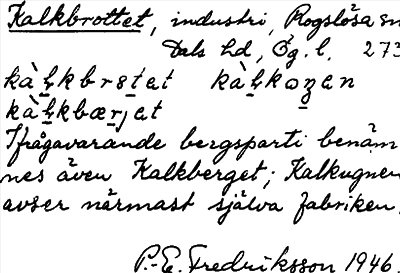 Kalkbrottet, industri, Rogslösa sn
Dals hd, Ög. l. 273
kàl̥kbrɛt̠et kàl̥kɷg̠en
kàl̥kbær̠jet
Ifrågavarande bergsparti benäm-
nes även Kalkberget; Kalkugnen
avser närmast själva fabriken.
P.-E. Fredriksson 1946.